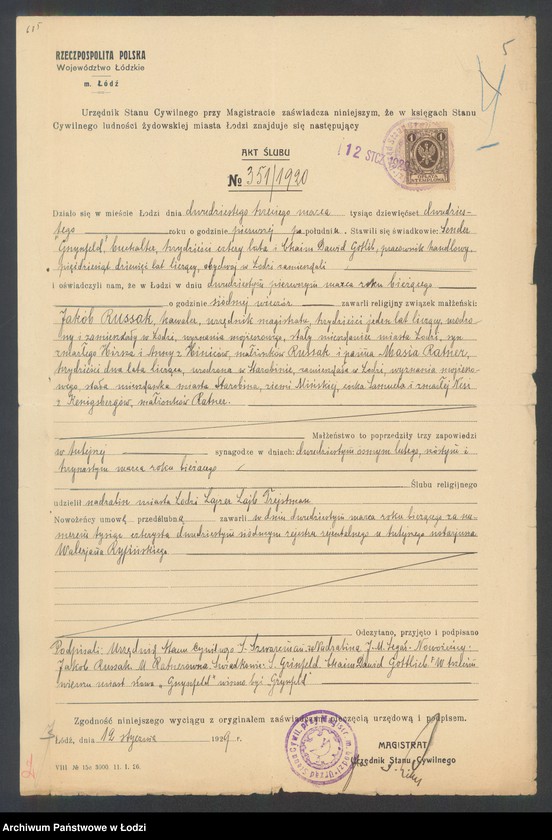 615
5
RZECZPOSPOLITA POLSKA
Województwo Łódzkie
m. Łódź
Urzędnik Stanu Cywilnego przy Magistracie zaświadcza niniejszym, że w księgach Stanu
Cywilnego ludności żydowskiej miasta Łodzi znajduje się następujący
AKT ŚLUBU
№ 351/1920
12 STCZ. 1929
OPŁATA
STEMPLOWA
Działo się w mieście Łodzi dnia dwudziestego trzeciego marca tysiąc dziewięćset dwudzies-
tego roku o godzinie pierwszej po południu. Stawili się świadkowie: Sender
"Gnynfeld" buchalter, trzydzieści cztery lata i Chaim Dawid Gotlib, pracownik handlowy,
pięćdziesiąt dziewięć lat liczący, obydwaj w Łodzi zamieszkali
i oświadczyli nam, że w Łodzi w dniu dwudziestym pierwszym marca roku bieżącego
o godzinie siódmej wieczór zawarli religijny związek małżeński:
Jakób Russak, kawaler, urzędnik magistratu, trzydzieści jeden lat liczący, urodzo-
ny i zamieszkały w Łodzi, wyznania mojżeszowego, stały mieszkaniec miasta Łodzi, syn
zmarłego Hirsza i Anny z Hiniców, małżonków Russak i panna Masia Ratner,
trzydzieści dwa lata licząca, urodzona w Starobinie, zamieszkała w Łodzi, wyznania mojżeszo-
wego, stała mieszkanka miasta Starobina, ziemi Mińskiej, córka Samuela i zmarłej Nesi
z Kenigsbergów, małżonków Ratner.
Małżeństwo to poprzedziły trzy zapowiedzi
w tutejszej synagodze w dniach: dwudziestym ósmym lutego, szóstym i
trzynastym marca roku bieżącego
Ślubu religijnego
udzielił nadrabin miasta Łodzi Lajzer Lajb Trejstman
Nowożeńcy umowę przedślubną zawarli w dniu dwudziestym marca roku bieżącego za nu-
merem tysiąc czterysta dwudziestym siódmym rejestru rejentalnego u tutejszego notarjusza
Walerjana Ryfińskiego
Odczytano, przyjęto i podpisano
Podpisali: Urzędnik Stanu Cywilnego S. Szwarcman. Nadrabina J. M. Segał. Nowożeńcy:
Jakób Russak. M. Ratnerówna. Świadkowie: S. Grinfeld. Chaim Dawid Gottlieb. W trzecim
wierszu miast słowa "Gnynfeld" winno być "Grynfeld"
Zgodność niniejszego wyciągu z oryginałem zaświadczam pieczęcią urzędową i podpisem.
Łódź, dnia 12 stycznia 1929 r.
MAGISTRAT
Urzędnik Stanu Cywilnego
VIII № 15c 3000. 11. 1. 26.
Archiwum Państwowe w Łodzi
www.genealogiawarchiwach.pl